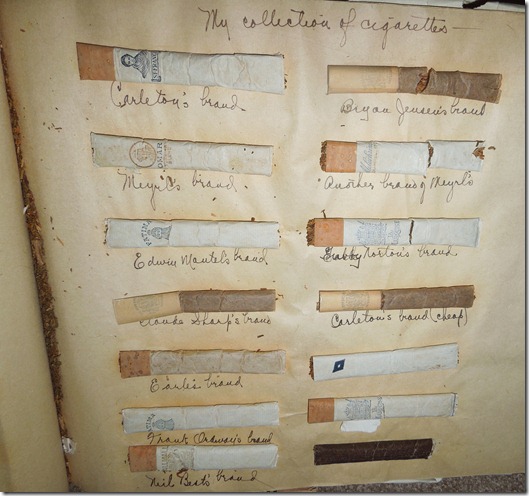 My collection of cigarettes —
STRAD
Carleton's brand.
Bryan Jensen's brand
OMAR
Meyrl's brand.
Another brand of Meyrl's
FATIMA
Edwin Mantel's brand
Norton's brand
Claude Sharp's brand
Carleton's brand (cheap)
Earle's brand
FATIMA
Frank brand
Neil Best's brand